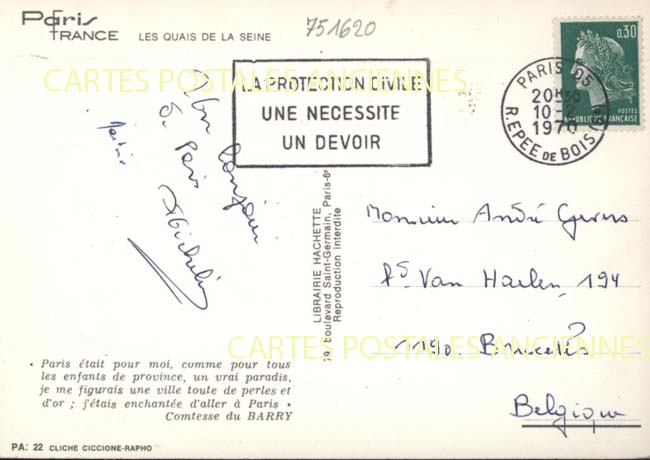 Paris
FRANCE
LES QUAIS DE LA SEINE
751620
CARTES POSTALES ANCIENNES
LA PROTECTION CIVILE
UNE NECESSITE
UN DEVOIR
PARIS 05
20H30
10-
1970
R.EPEE DE BOIS
0,30
POSTES
REPUBLIQUE FRANÇAISE
bonjour
de Paris
LIBRAIRIE HACHETTE
79, boulevard Saint-Germain, Paris-6e
Reproduction interdite
Monsieur André Gevers
Van Haelen 194
CARTES POSTALES ANCIENNES
1190. Bruxelles
Belgique
« Paris était pour moi, comme pour tous
les enfants de province, un vrai paradis,
je me figurais une ville toute de perles et
d'or ; j'étais enchantée d'aller à Paris »
Comtesse du BARRY
PA. 22 CLICHE CICCIONE-RAPHO